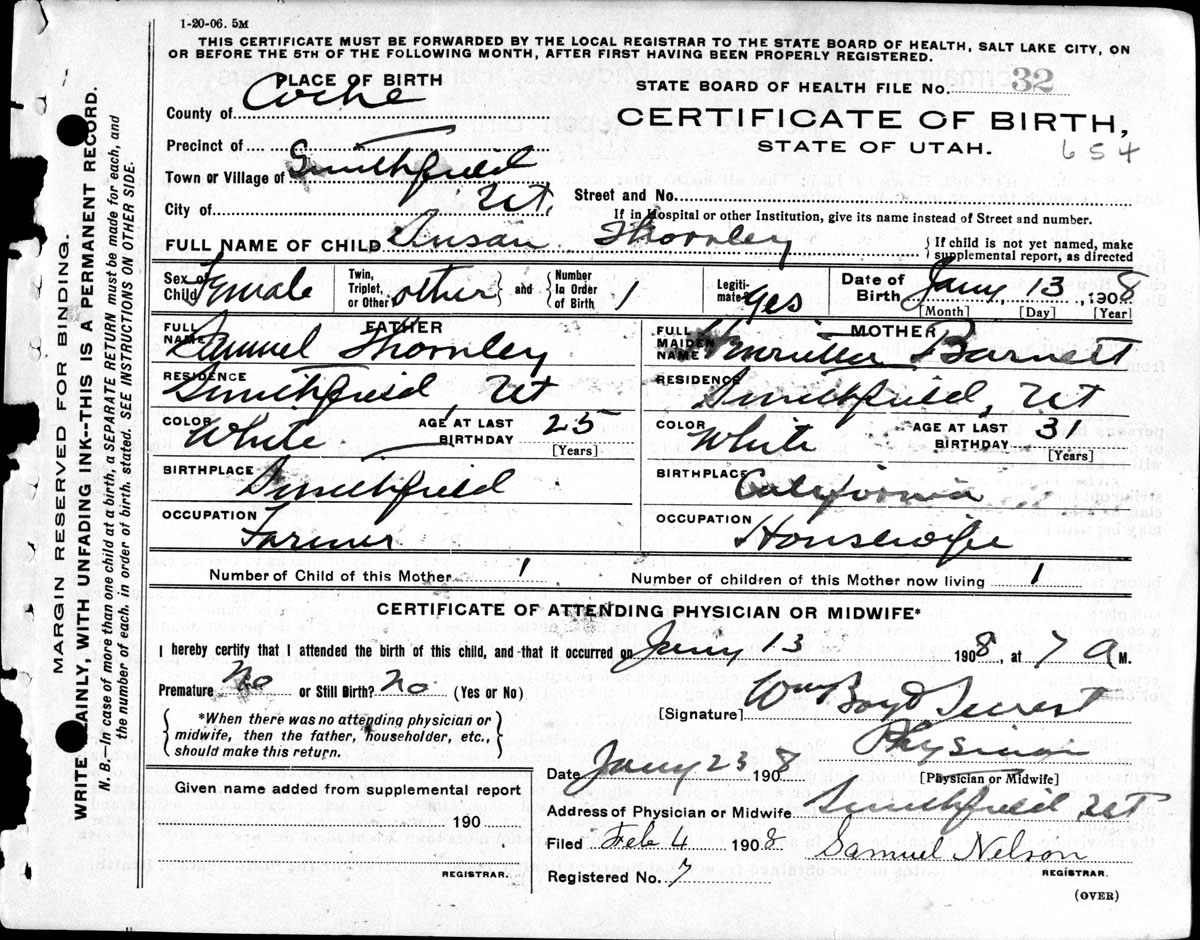 1-20-06. 5M
THIS CERTIFICATE MUST BE FORWARDED BY THE LOCAL REGISTRAR TO THE STATE BOARD OF HEALTH, SALT LAKE CITY, ON
OR BEFORE THE 5TH OF THE FOLLOWING MONTH, AFTER FIRST HAVING BEEN PROPERLY REGISTERED.
PLACE OF BIRTH
STATE BOARD OF HEALTH FILE NO. 32
County of Cache
CERTIFICATE OF BIRTH,
STATE OF UTAH.
654
Precinct of
Town or Village of Smithfield
City of Ut.
Street and No.
If in Hospital or other Institution, give its name instead of Street and number.
FULL NAME OF CHILD Susan Thornley
{ If child is not yet named, make supplemental report, as directed
Sex of Child Female
Twin, Triplet, or Other other } and { Number In Order of Birth 1
Legitimate yes
Date of Birth Jany, 13, 1908
[Month] [Day] [Year]
FATHER
FULL NAME Samuel Thornley
RESIDENCE Smithfield, Ut
COLOR White AGE AT LAST BIRTHDAY 25 [Years]
BIRTHPLACE Smithfield
OCCUPATION Farmer
MOTHER
FULL MAIDEN NAME Barnett
RESIDENCE Smithfield, Ut
COLOR White AGE AT LAST BIRTHDAY 31 [Years]
BIRTHPLACE California
OCCUPATION Housewife
Number of Child of this Mother 1 Number of children of this Mother now living 1
CERTIFICATE OF ATTENDING PHYSICIAN OR MIDWIFE*
I hereby certify that I attended the birth of this child, and that it occurred on Jany 13 1908, at 7 A M.
Premature No or Still Birth? No (Yes or No)
{ *When there was no attending physician or midwife, then the father, householder, etc., should make this return. }
[Signature] Wm Boyd
[Physician or Midwife]
Date Jany 23 1908
Address of Physician or Midwife Smithfield, Ut
Filed Feb 4 1908 Samuel Nelson
REGISTRAR.
Registered No. 7
(OVER)
Given name added from supplemental report
190
REGISTRAR.
MARGIN RESERVED FOR BINDING.
WRITE LAINLY, WITH UNFADING INK--THIS IS A PERMANENT RECORD.
N. B.—In case of more than one child at a birth, a SEPARATE RETURN must be made for each, and
the number of each, in order of birth, stated. SEE INSTRUCTIONS ON OTHER SIDE.